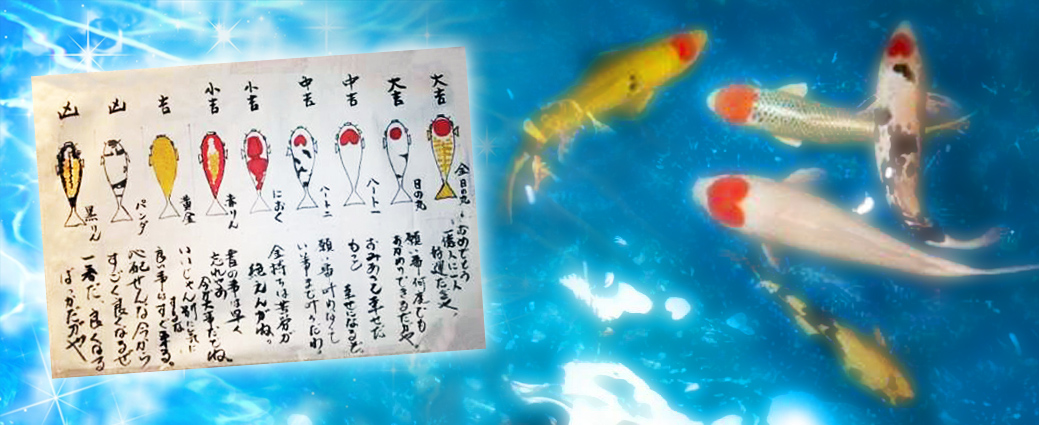 大吉
大吉
中吉
中吉
小吉
小吉
吉
凶
凶
金日の丸
日の丸
ハート一
ハート二
におく
赤りん
黄金
パンダ
黒りん
おめでとう
一億人に一人
特選だぎゃ。
願い事何度でも
できるだぎゃ。
幸せだ
幸せになるぞ
願い事叶
いい事まで叶うだわ。
金持ちは苦労が
絶えんがね。
昔の事は早く
忘れやあ
今が大事だでね。
いいじゃん別に気に
するな
良い事はすぐ来る。
心配せんな今から
すごく良くなるぜ
一番だ、良くなる
ばっかだがや。